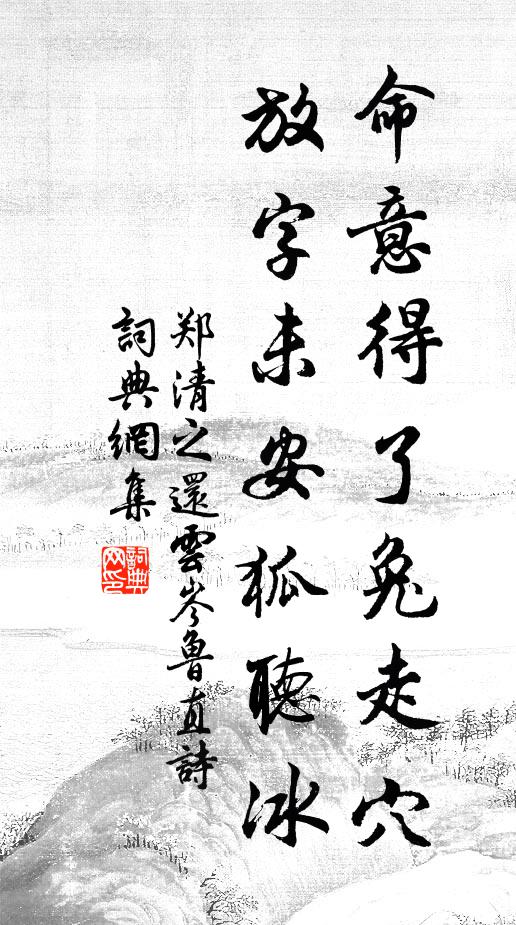 命意得了兔走穴
放字未安狐聽冰
郑清之還雲岑魯直詩
詞典網集
詞典网印